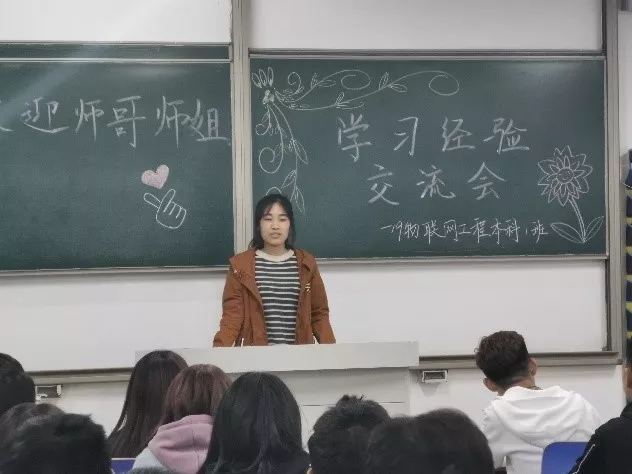 迎师哥师姐
学习经验
交流会
—19物联网工程本科1班